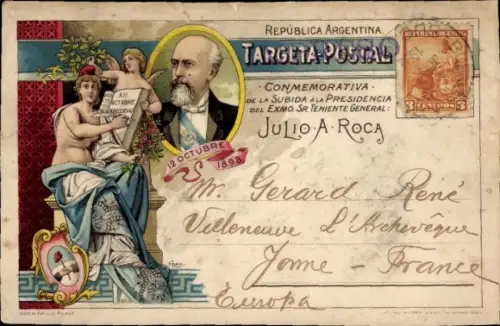 REPÚBLICA ARGENTINA
TARGETA-POSTAL
CONMEMORATIVA
DE LA SUBIDA Á LA PRESIDENCIA
DEL EXMO. SR. TENIENTE GENERAL:
JULIO·A·ROCA
REPUBLICA ARGENTINA
3 CENTAVOS 3
XII
OCTUBRE
12 OCTUBRE
1898
Mr. Gerard René
Villeneuve l'Archevêque
Yonne - France
Europa